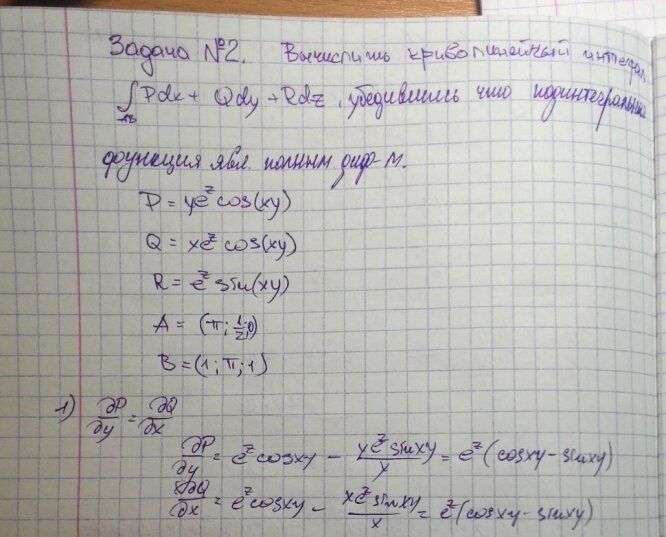 Задача №2. Вычислить криволинейный интеграл
∫_AB Pdx + Qdy + Rdz, убедившись что подинтегральная
функция явл. полным диф-м.
P = ye^z cos(xy)
Q = xe^z cos(xy)
R = e^z sin(xy)
A = (π; 1/2; 0)
B = (1; π; 1)
1) ∂P/∂y = ∂Q/∂x
∂P/∂y = e^z cosxy - ye^z sinxy/y = e^z (cosxy - sinxy)
∂Q/∂x = e^z cosxy - xe^z sinxy/x = e^z (cosxy - sinxy)